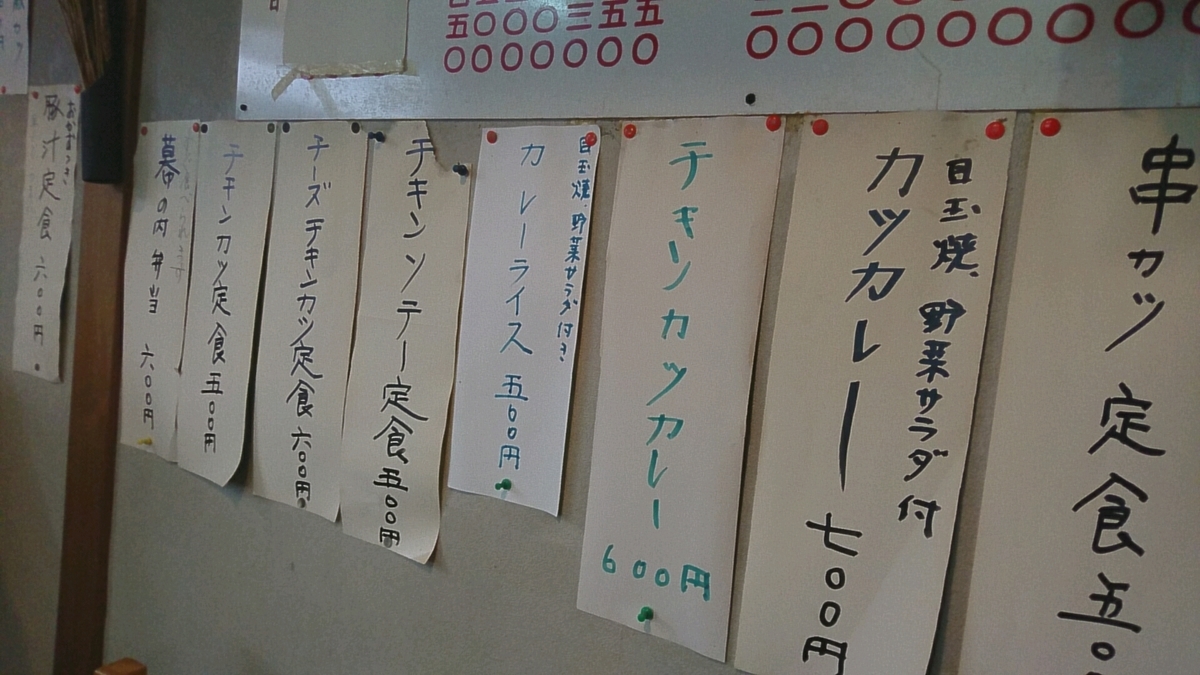 五〇〇〇三五五
〇〇〇〇〇〇〇
〇〇〇〇〇〇〇〇
串カツ定食 五〇
目玉焼、野菜サラダ付
カツカレー 七〇〇円
チキンカツカレー 600円
目玉焼、野菜サラダ付き
カレーライス 五〇〇円
チキンソテー定食 五〇〇円
チーズチキンカツ定食 六〇〇円
チキンカツ定食 五〇〇円
幕の内弁当 六〇〇円
おかずつき
豚汁定食 六〇〇円